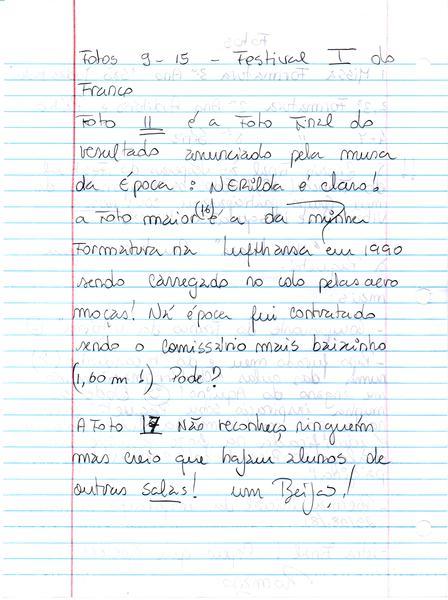 Fotos 9-15 - Festival I do
Franco
Foto 11 é a Foto Final do
resultado anunciado pela musa
da Época: NERILDA é claro!
a Foto maior (16) é a da minha
Formatura na Lufthansa em 1990
sendo carregado no colo pelas aero
moças! Na época fui contratado
sendo o comissário mais baixinho
(1,60 m!) Pode?
A Foto 17 Não reconheço ninguém
mas creio que hajam alunos de
outras salas! um Beijão!